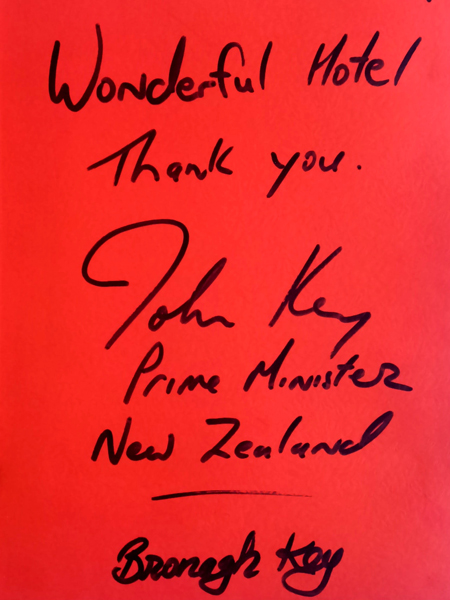 Wonderful Hotel
Thank you.
John Key
Prime Minister
New Zealand
Bronagh Key